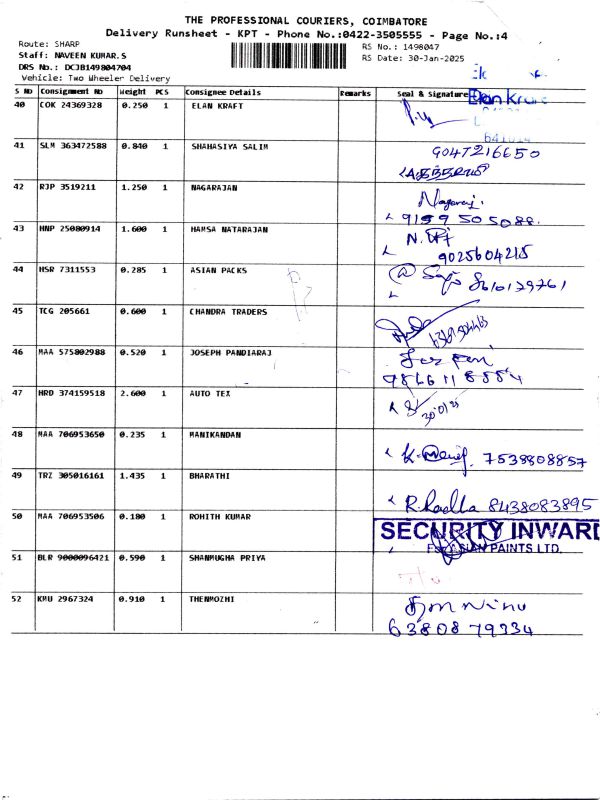 THE PROFESSIONAL COURIERS, COIMBATORE
Delivery Runsheet - KPT - Phone No.:0422-3505555 - Page No.:4
Route: SHARP
RS No.: 1498047
Staff: NAVEEN KUMAR.S
RS Date: 30-Jan-2025
DRS No.: DCJB149804704
Vehicle: Two Wheeler Delivery
S NO Consignment NO Weight PCS Consignee Details Remarks Seal & Signature
Elan Kraft
40 COK 24369328 0.250 1 ELAN KRAFT
41 SLM 363472588 0.840 1 SHAHASIYA SALIM 9047216650
42 RJP 3519211 1.250 1 NAGARAJAN Nagaraj.
9159505088.
43 HNP 25080914 1.600 1 HAMSA NATARAJAN
9025604215
44 HSR 7311553 0.285 1 ASIAN PACKS 8610139761
45 TCG 205661 0.600 1 CHANDRA TRADERS
46 MAA 575802988 0.520 1 JOSEPH PANDIARAJ
9866118884
47 HRD 374159518 2.600 1 AUTO TEX
30/01/25
48 MAA 706953650 0.235 1 MANIKANDAN
7538808857
49 TRZ 305016161 1.435 1 BHARATHI
R. Radha 8438083895
50 MAA 706953506 0.180 1 ROHITH KUMAR
SECURITY INWARD
For ASIAN PAINTS LTD.
51 BLR 9000096421 0.590 1 SHANMUGHA PRIYA
52 KMU 2967324 0.910 1 THENMOZHI
6380879334